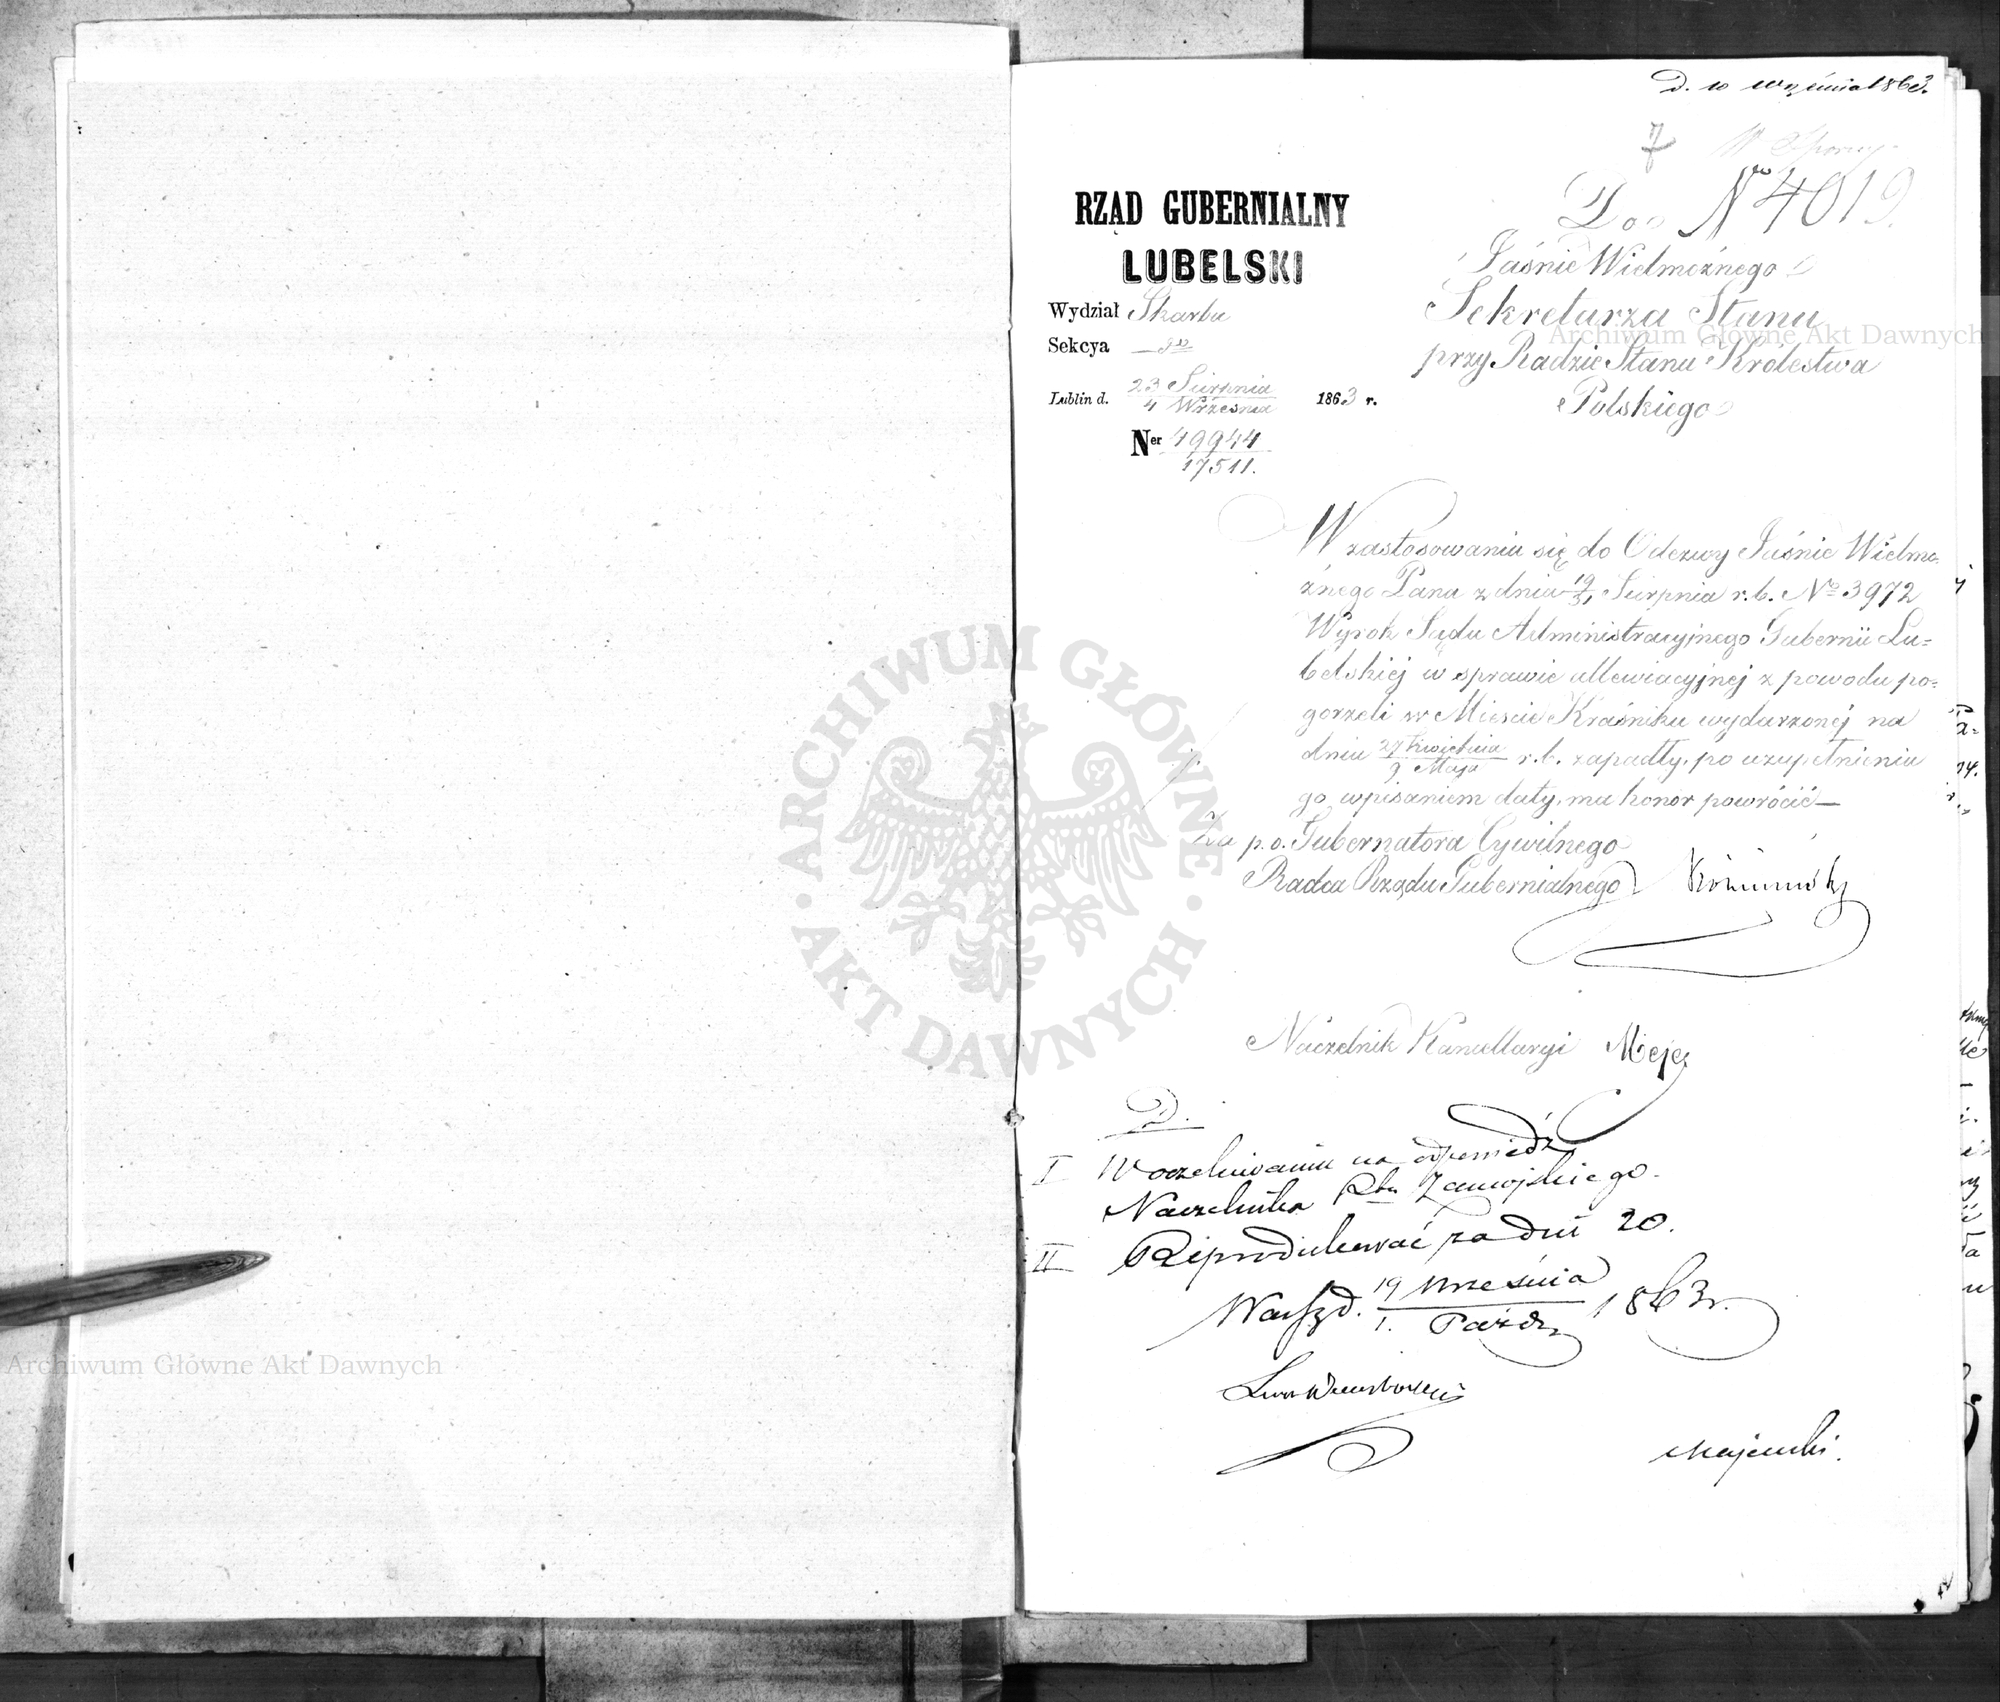 D. 10 września 1863.
7
W Spory
Do No 4019.
RZĄD GUBERNIALNY
LUBELSKI
Wydział Skarbu
Sekcya
Lublin d. 23 Sierpnia / 4 Września 1863 r.
Ner 49944 / 17511.
Jaśnie Wielmożnego
Sekretarza Stanu
przy Radzie Stanu Królestwa
Polskiego
W zastosowaniu się do Odezwy Jaśnie Wielmo-
żnego Pana z dnia 19/31 Sierpnia r.b. No 3972
Wyrok Sądu Administracyjnego Gubernii Lu-
belskiej w sprawie allewiacyjnej z powodu po-
gorzeli w Mieście Kraśniku wydarzonej na
dniu 27 Kwietnia / 9 Maja r.b. zapadły, po uzupełnieniu
go wpisaniem daty, ma honor powrócić—
Za p.o. Gubernatora Cywilnego
Radca Rządu Gubernialnego
Naczelnik Kancellaryi
D.
I W oczekiwaniu na odpowiedź
Naczelnika Ptu Zamojskiego.
II Reprodukować za dni 20.
Warsz d. 19 Września / 1. Paźdz 1863 r.
Majewski.
ARCHIWUM GŁÓWNE AKT DAWNYCH
Archiwum Główne Akt Dawnych
Archiwum Główne Akt Dawnych